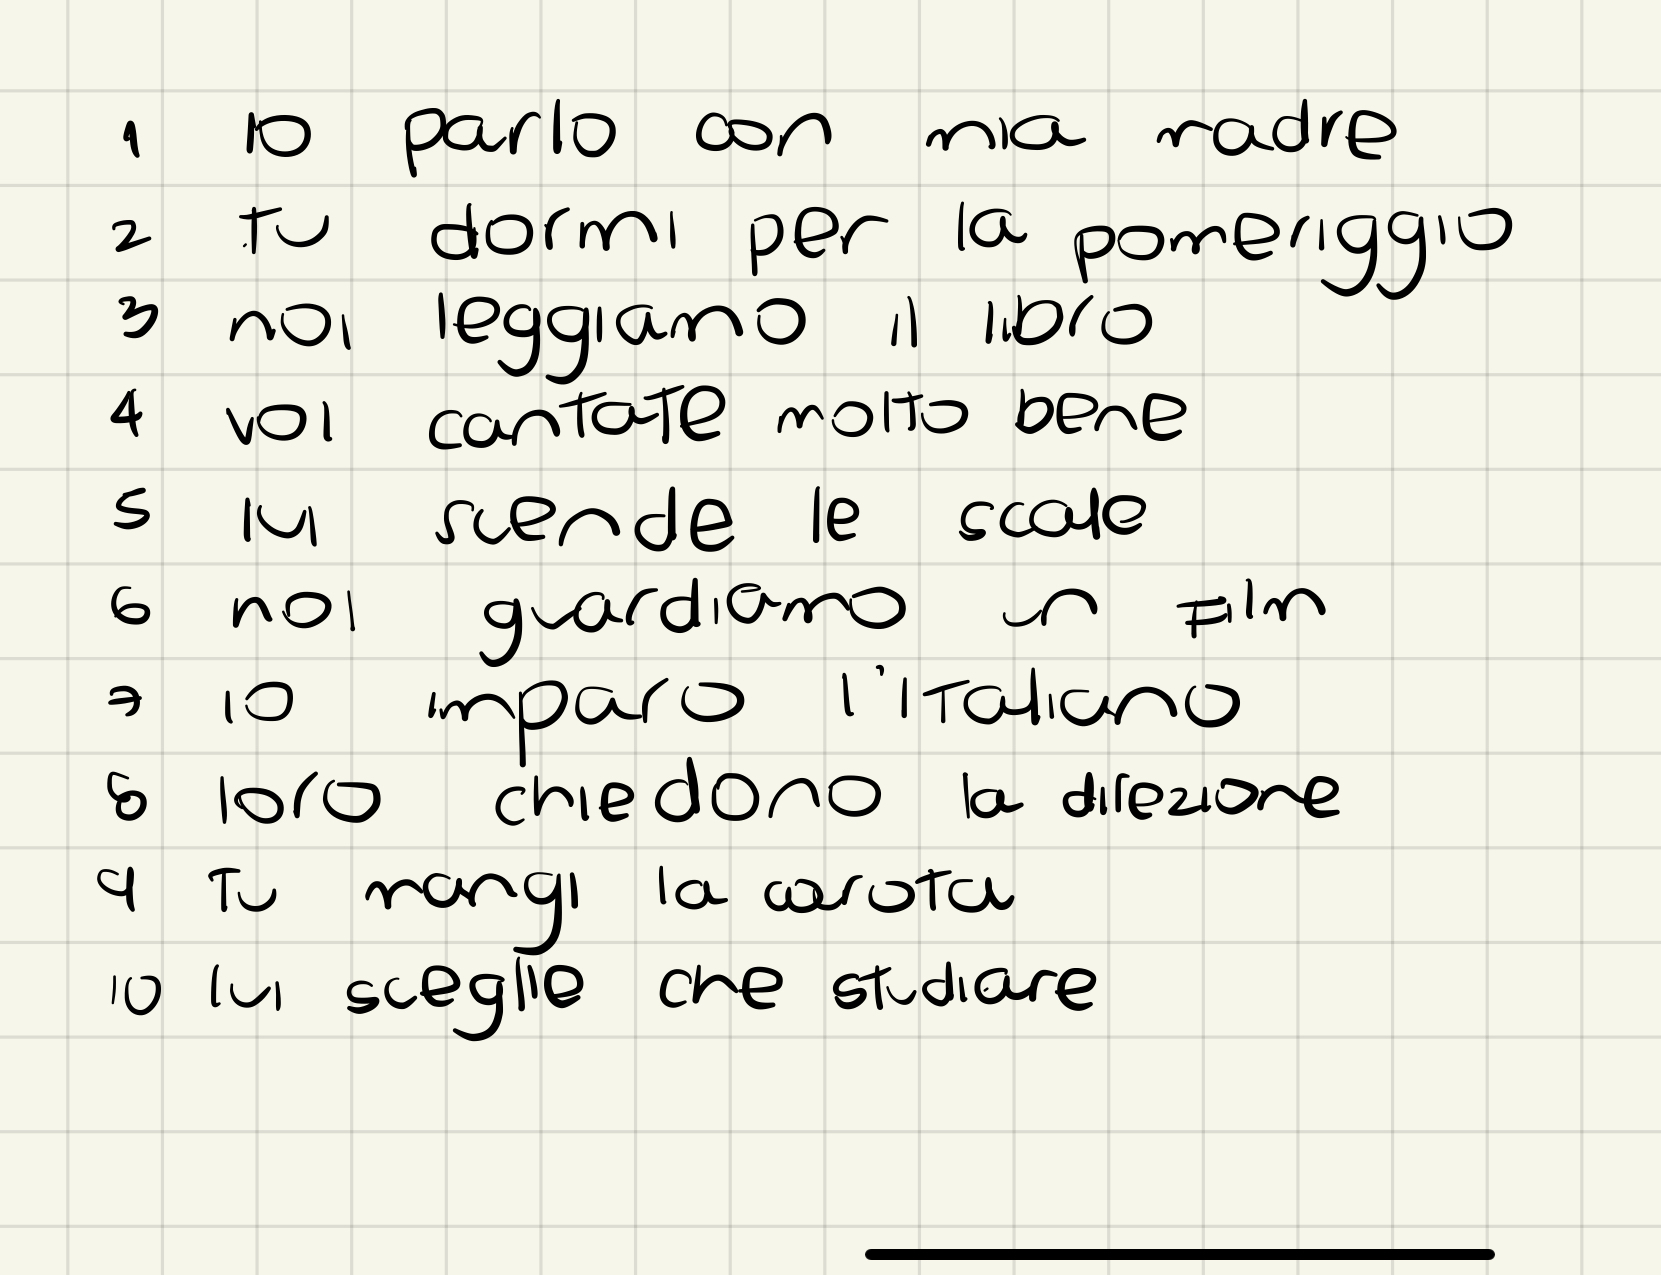 1 io parlo con mia madre
2 tu dormi per la pomeriggio
3 noi leggiamo il libro
4 voi cantate molto bene
5 lui scende le scale
6 noi guardiamo un film
7 io imparo l'italiano
8 loro chiedono la direzione
9 Tu mangi la carota
10 lui sceglie che studiare